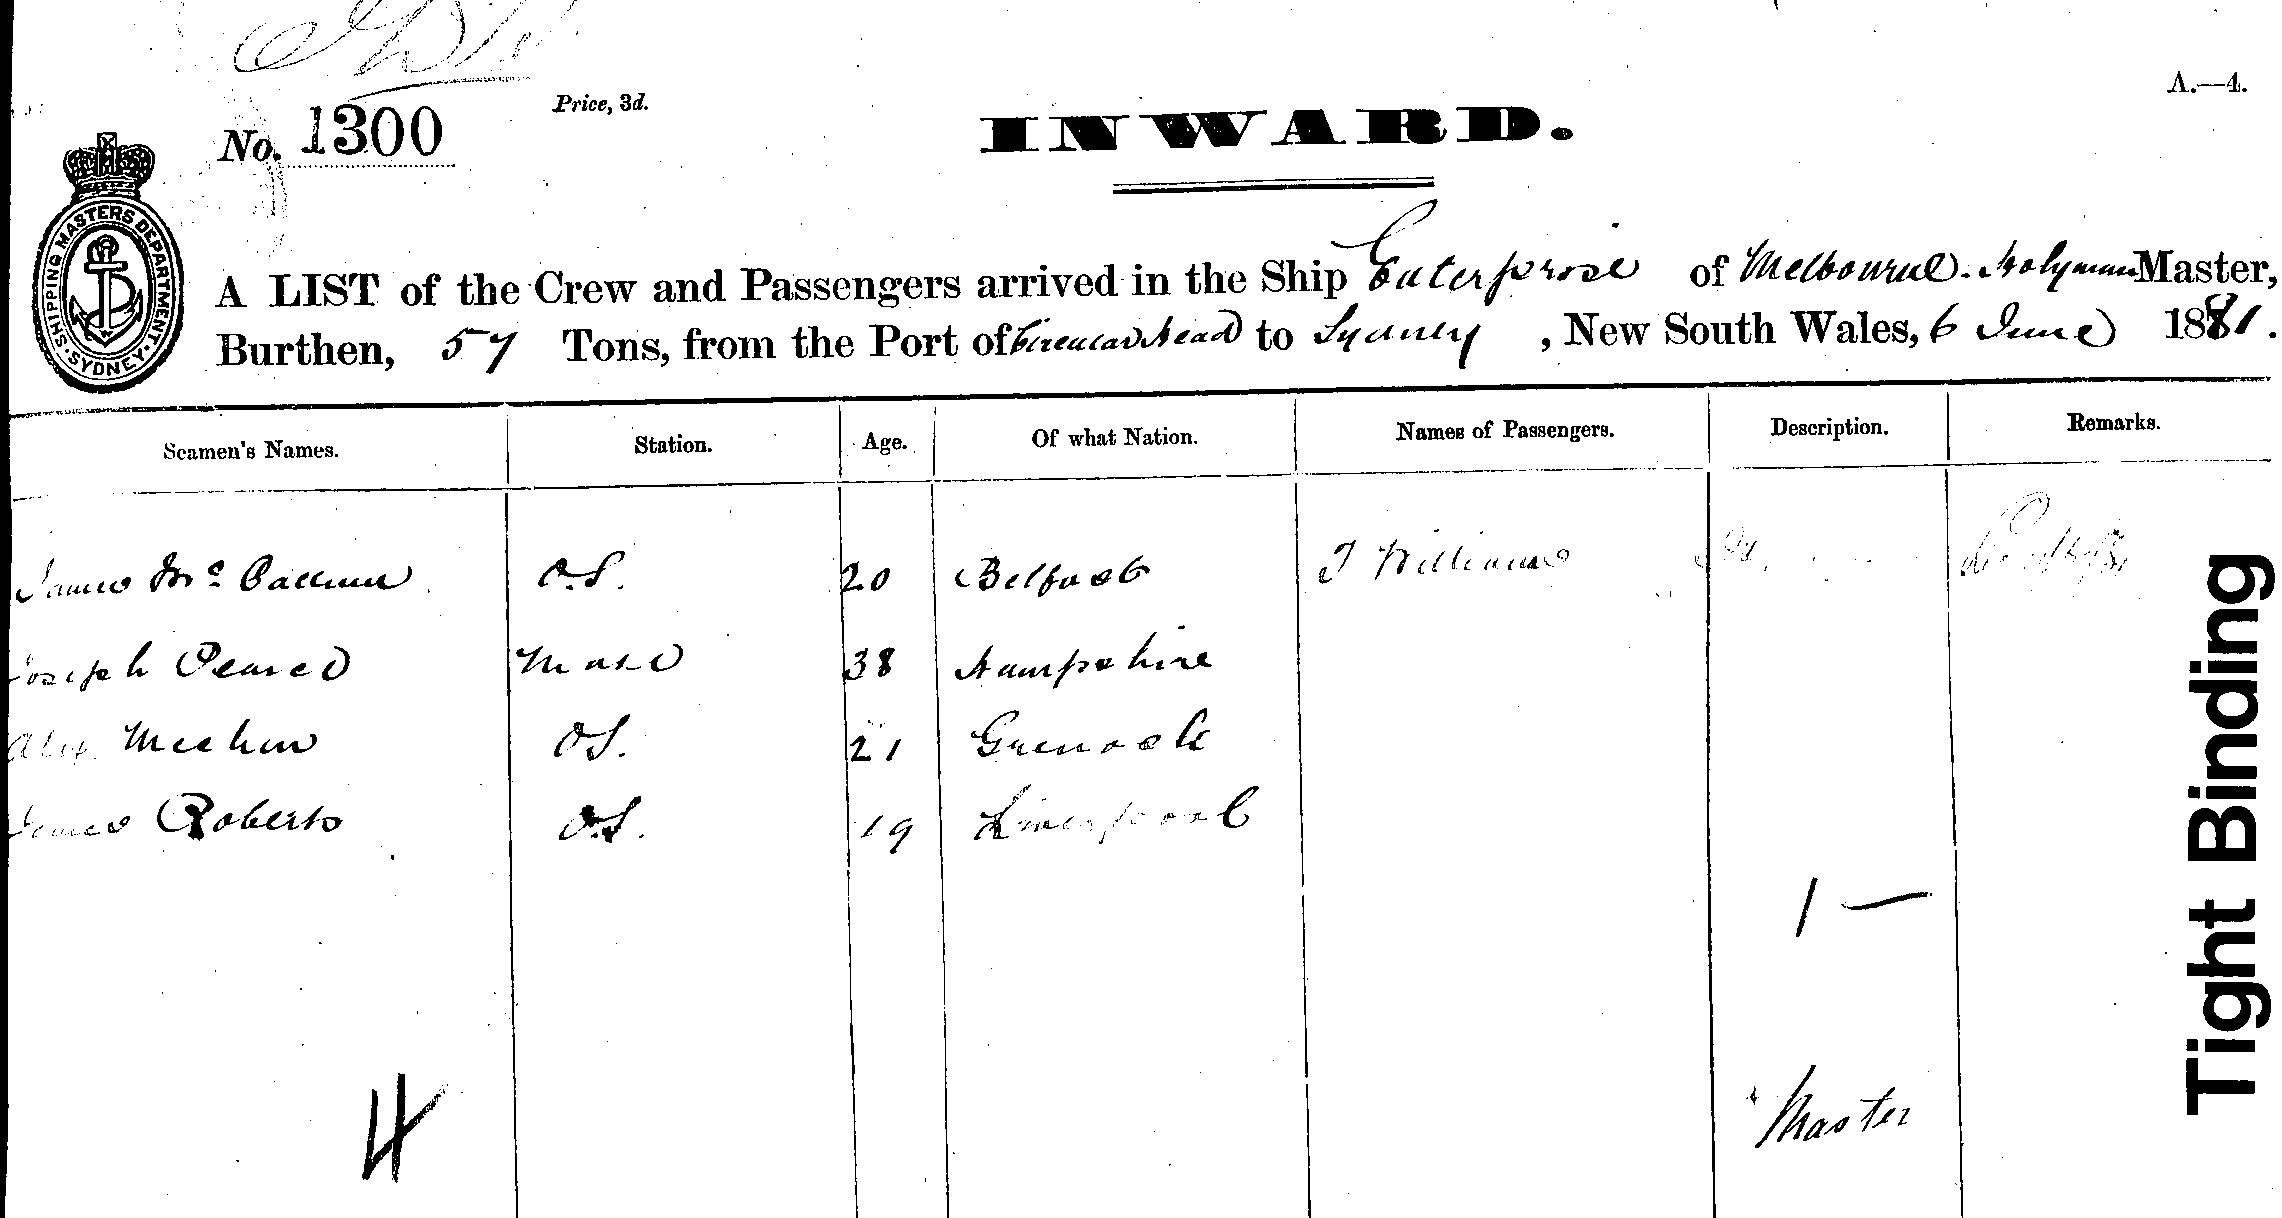 No. 1300
Price, 3d.
INWARD.
A.—4.
SHIPPING MASTERS DEPARTMENT. SYDNEY.
A LIST of the Crew and Passengers arrived in the Ship Enterprise of Melbourne. Holyman Master,
Burthen, 57 Tons, from the Port of Circular Head to Sydney, New South Wales, 6 June 1881.
Seamen's Names. Station. Age. Of what Nation. Names of Passengers. Description. Remarks.
James Mc Callum O.S. 20 Belfast T Williams
Joseph Pearce Mate 38 Hampshire
Alex Meehan OS. 21 Greenock
James Roberts O.S. 19 Liverpool
1 —
4
Master
Tight Binding